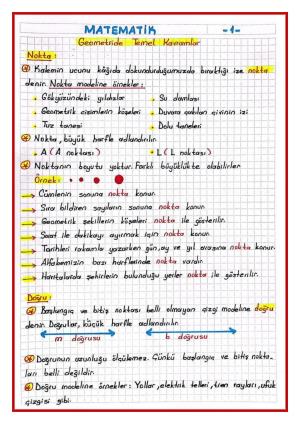 MATEMATİK -1-
Geometride Temel Kavramlar
Nokta:
Kalemin ucunu kâğıda dokundurduğumuzda bıraktığı ize nokta
denir. Nokta modeline örnekler:
Gökyüzündeki yıldızlar Su damlası
Geometrik cisimlerin köşeleri Duvara çakılan çivinin izi
Tuz tanesi Dolu taneleri
Nokta, büyük harfle adlandırılır.
A (A noktası) L (L noktası)
Noktanın boyutu yoktur. Farklı büyüklükte olabilirler
Örnek:
Cümlenin sonuna nokta konur.
Sıra bildiren sayıların sonuna nokta konur.
Geometrik şekillerin köşeleri nokta ile gösterilir.
Saat ile dakikayı ayırmak için nokta konur.
Tarihleri rakamla yazarken gün, ay ve yıl arasına nokta konur.
Alfabemizin bazı harflerinde nokta vardır.
Haritalarda şehirlerin bulunduğu yerler nokta ile gösterilir.
Doğru:
Başlangıç ve bitiş noktaları belli olmayan çizgi modeline doğru
denir. Doğrular, küçük harfle adlandırılır.
m doğrusu b doğrusu
Doğrunun uzunluğu ölçülemez. Çünkü başlangıç ve bitiş nokta-
ları belli değildir.
Doğru modeline örnekler: Yollar, elektrik telleri, tren rayları, ufuk
çizgisi gibi.